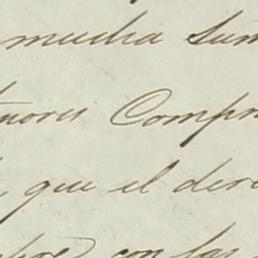 mucha sum
nores Compr
que el dere
con las